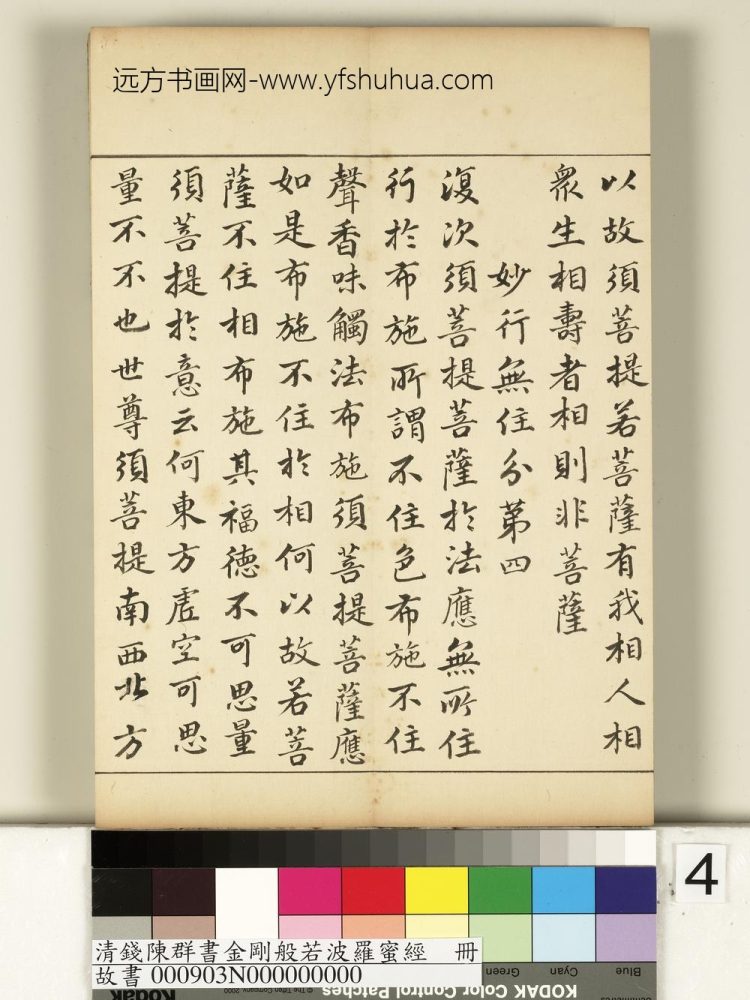 远方书画网-www.yfshuhua.com
以故須菩提若菩薩有我相人相
衆生相壽者相則非菩薩
妙行無住分第四
復次須菩提菩薩於法應無所住
行於布施所謂不住色布施不住
聲香味觸法布施須菩提菩薩應
如是布施不住於相何以故若菩
薩不住相布施其福德不可思量
須菩提於意云何東方虛空可思
量不不也世尊須菩提南西北方
4
清錢陳群書金剛般若波羅蜜經 冊
故書 000903N000000000
Blue
Cyan
Green
KODAK Color Control Patches
Kodak